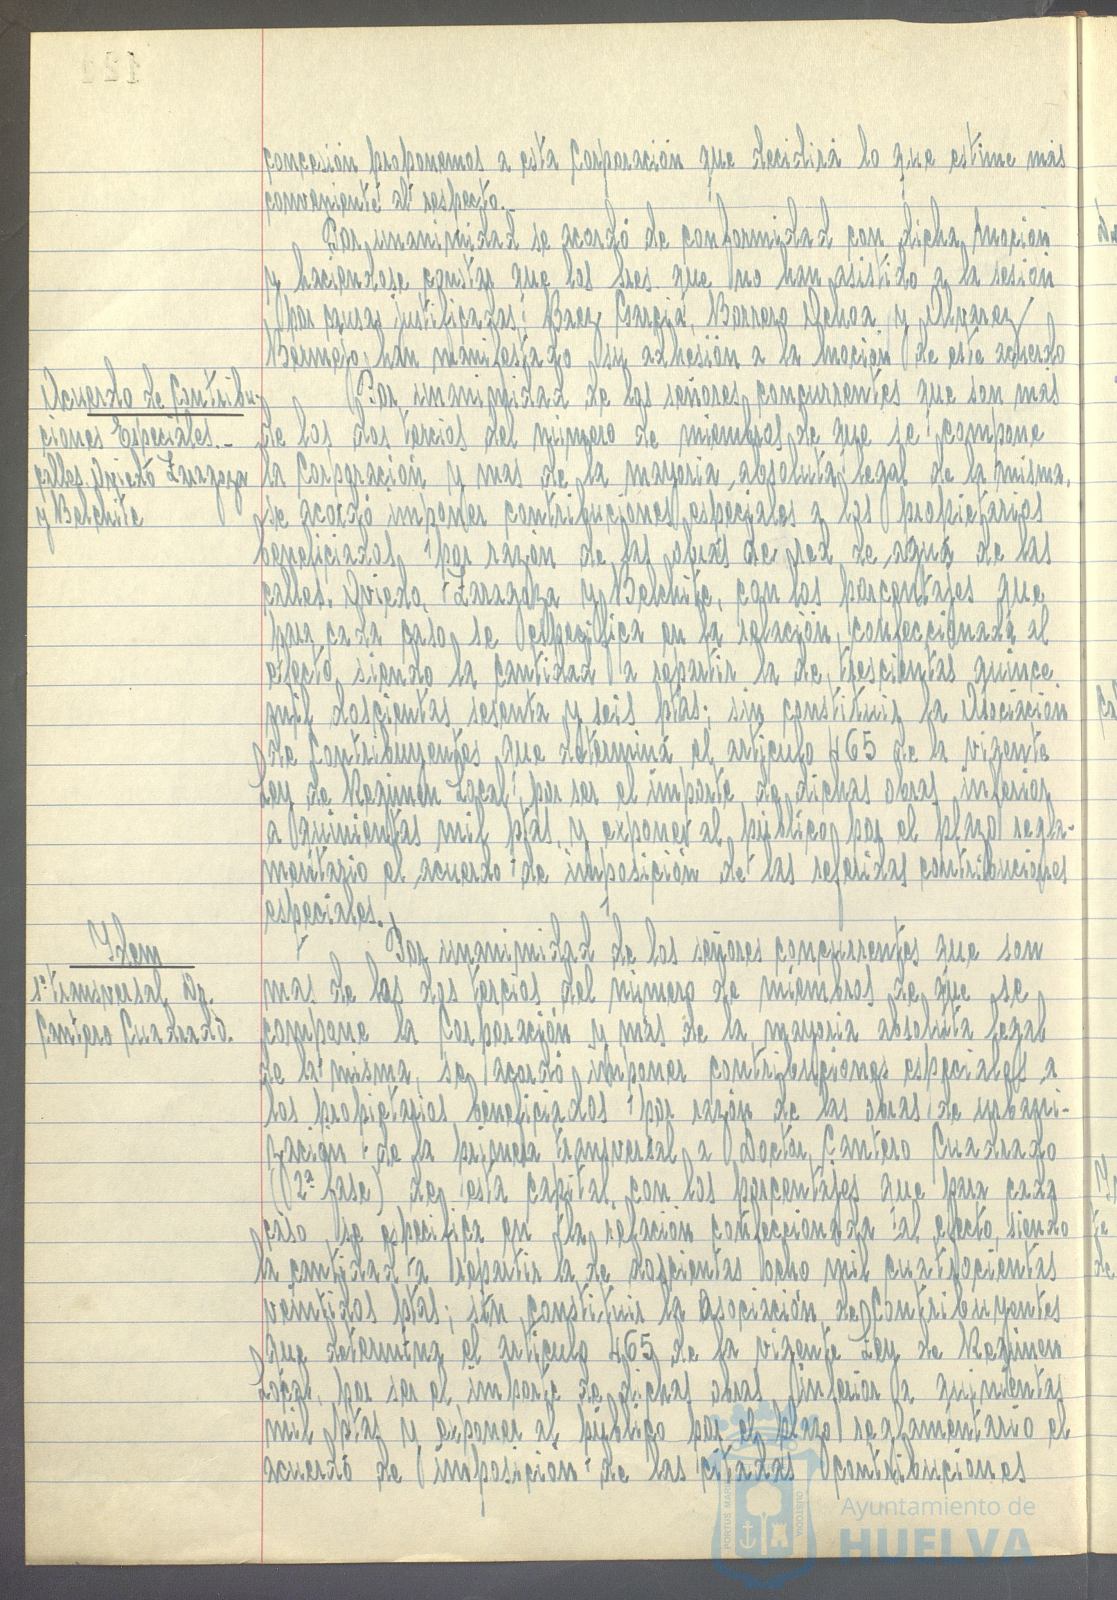 concesión proponemos a esta Corporación que decidirá lo que estime más
conveniente al respecto.
Por unanimidad se acordó de conformidad con dicha Moción
y haciendose constar que los sres. que no han asistido a la sesión
por causas justificadas: Baez García, Borrero Ochoa y Alvarez
Bermejo, han manifestado su adhesión a la moción de este acuerdo
Acuerdo de Contribu-
ciones Especiales.-
calles Oviedo Zaragoza
y Belchite
Por unanimidad de los señores concurrentes que son más
de los dos tercios del número de miembros de que se compone
la Corporación y mas de la mayoria absoluta legal de la misma,
se acordó imponer contribuciones especiales a los propietarios
beneficiados por razón de las obras de red de agua de las
calles, Oviedo, Zaragoza y Belchite, con los porcentajes que
para cada caso se especifica en la relación, confeccionada al
efecto siendo la cantidad a repartir la de, trescientas quince
mil doscientas sesenta y seis ptas; sin constituir la Asociación
de Contribuyentes que determina el artículo 465 de la vigente
Ley de Regimen Local, por ser el importe de dichas obras inferior
a quinientas mil ptas, y exponer al público por el plazo regla-
mentario el acuerdo de imposición de las referidas contribuciones
especiales.
Idem
1ª transversal Dr.
Cantero Cuadrado.
Por unanimidad de los señores concurrentes que son
mas de los dos tercios del número de miembros de que se
compone la Corporación y mas de la mayoria absoluta legal
de la misma, se acordó imponer contribuciones especiales a
los propietarios beneficiados por razón de las obras de urbani-
zación de la primera transversal a Doctor Cantero Cuadrado
(2ª fase) de esta capital con los porcentajes que para cada
caso se especifica en la relación confeccionada al efecto, siendo
la cantidad a repartir la de doscientas ocho mil cuatrocientas
veintidos ptas; sin constituir la Asociación de Contribuyentes
que determina el artículo 465 de la vigente Ley de Regimen
Local, por ser el importe de dichas obras inferior a quinientas
mil ptas y exponer al público por el plazo reglamentario el
acuerdo de imposición de las citadas contribuciones
Ayuntamiento de
HUELVA